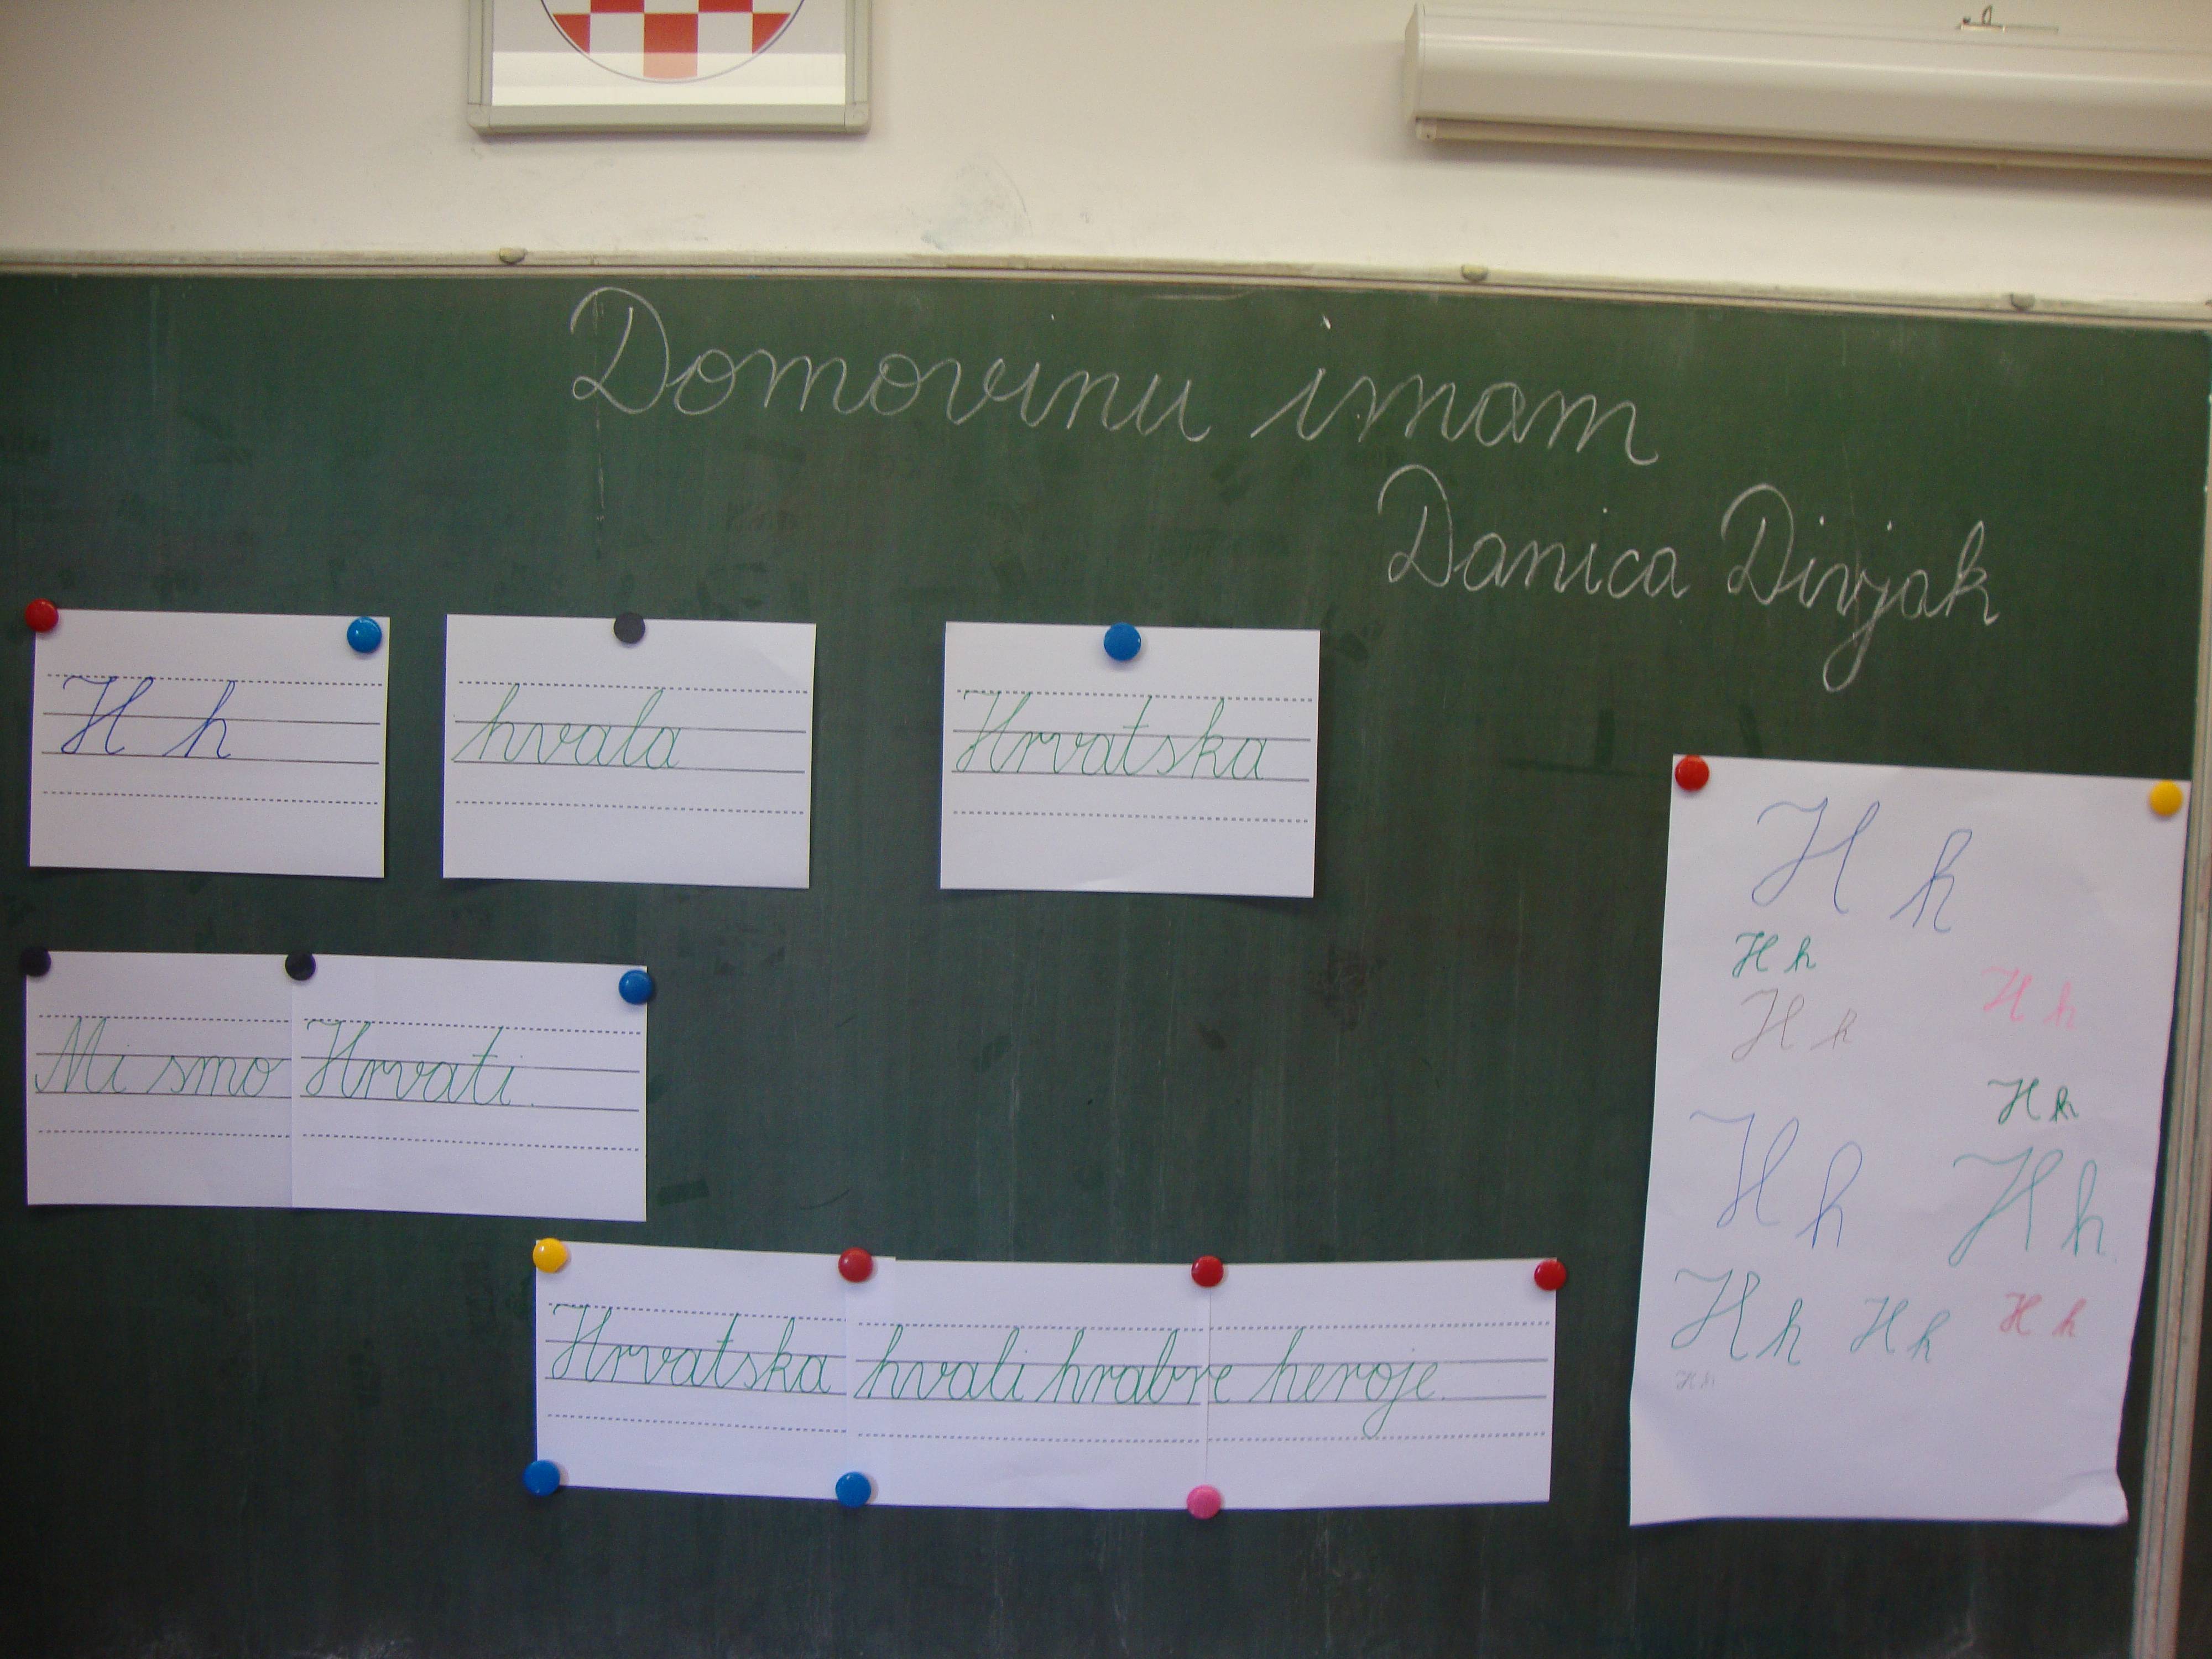 Domovinu imam
Danica Divjak
H h
hvala
Hrvatska
Mi smo Hrvati.
Hrvatska hvali hrabre heroje.
H h
H h
H h
H h
H h
H h
H h
H h
H h
H h
H h